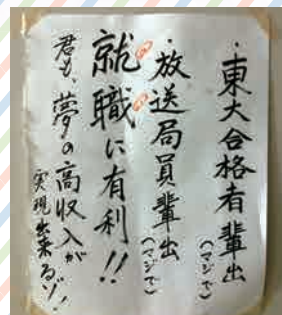 ・東大合格者輩出(マジで)
・放送局員輩出(マジで)
就職に有利!!
君も、夢の高収入が
実現出来るゾ!